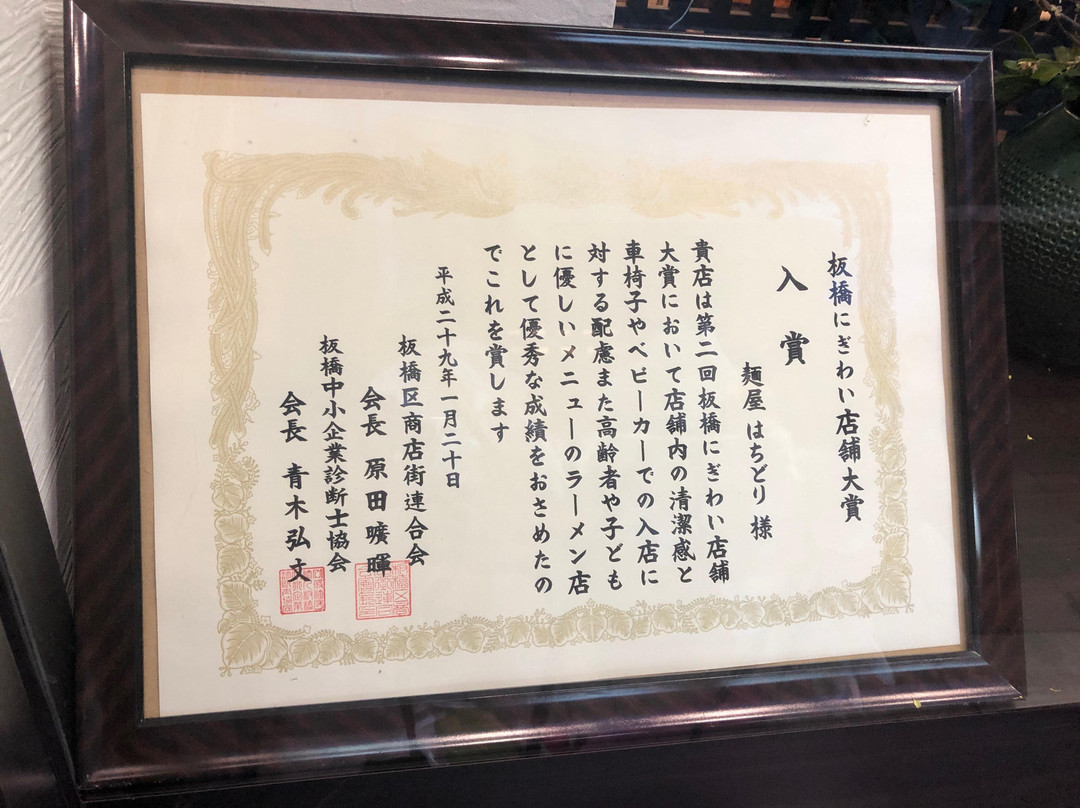 板橋にぎわい店舗大賞
入賞
麺屋 はちどり 様
貴店は第二回板橋にぎわい店舗
大賞において店舗内の清潔感と
車椅子やベビーカーでの入店に
対する配慮また高齢者や子ども
に優しいメニューのラーメン店
として優秀な成績をおさめたの
でこれを賞します
平成二十九年一月二十日
板橋区商店街連合会
会長 原田曠暉
板橋中小企業診断士協会
会長 青木弘文